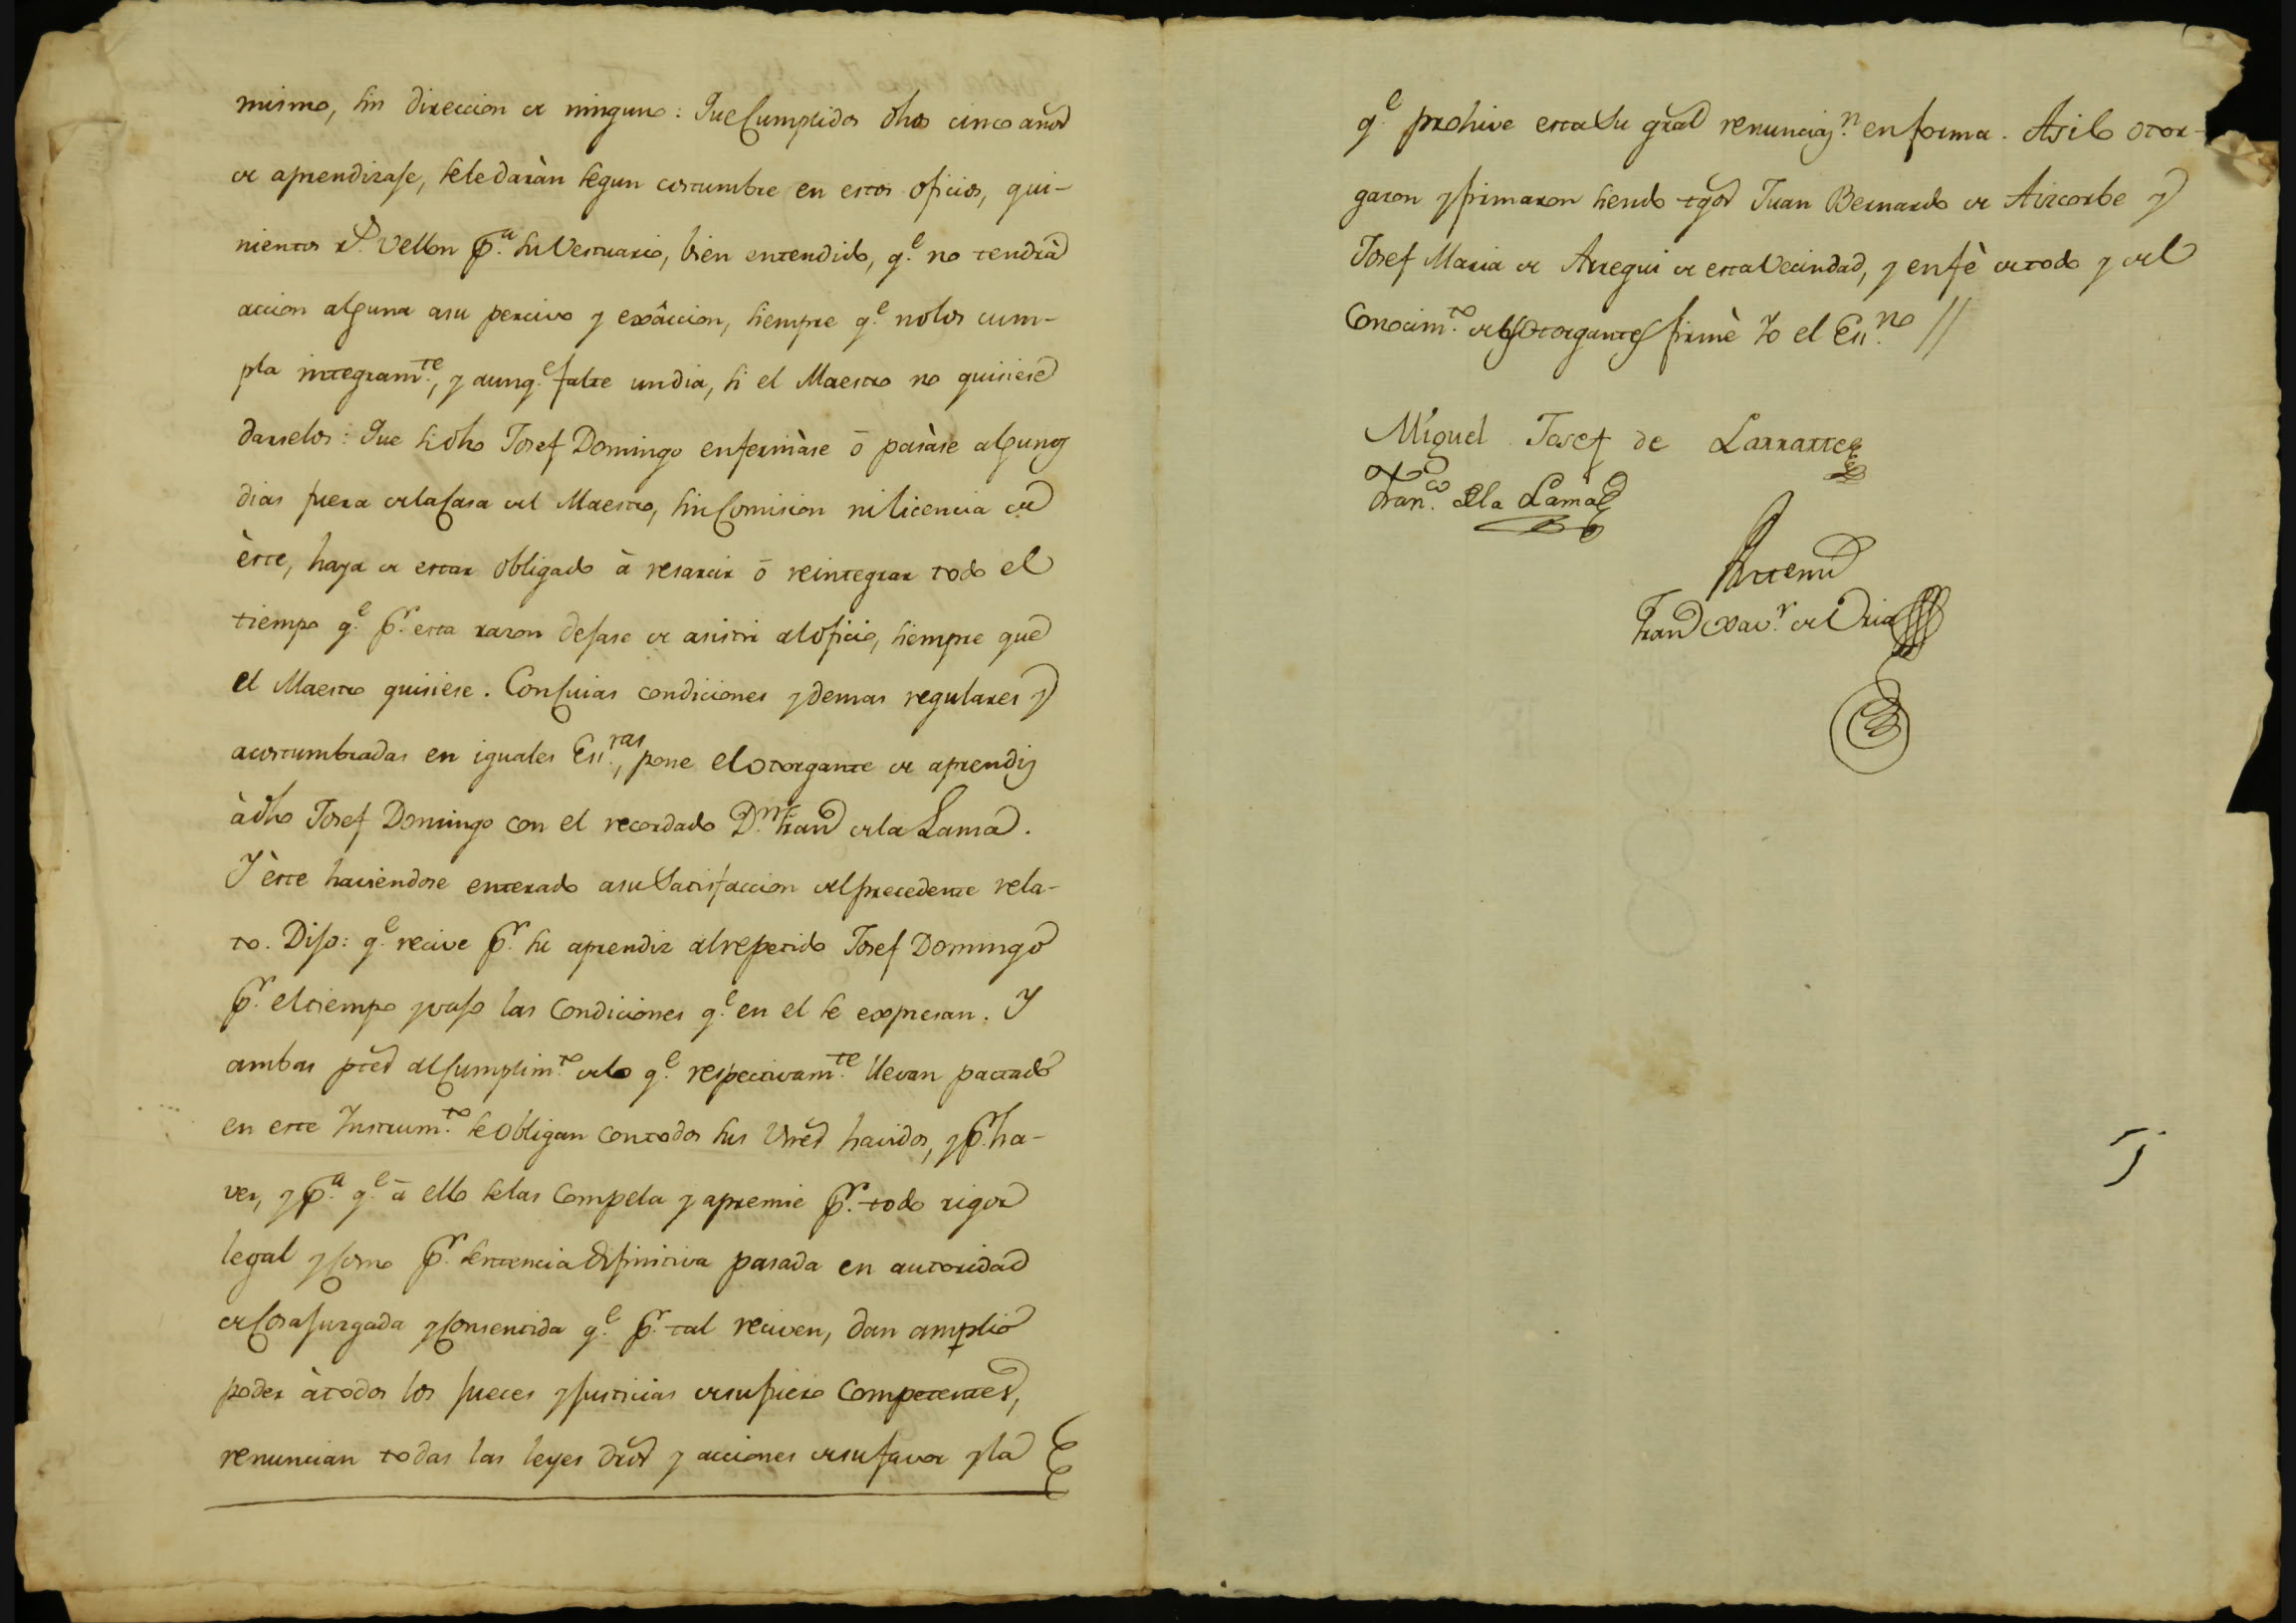 mismo, sin direccion de ninguno: Que Cumplidos dhos cinco años
de aprendizaje, se le daràn segun costumbre en estos oficios, qui-
nientos rs. Vellon pa. su Vestuario, bien entendido, qe. no tendrà
accion alguna a su percivo y exâccion, siempre qe. no los cum-
pla integramte., y aunqe. falte un dia, si el Maestro no quisiese
darselos: Que si dho Josef Domingo enfermàse ó pasàse algunos
dias fuera de la Casa del Maestro, sin Comision ni licencia de
èste, haya de estar Obligado à resarcir ó reintegrar todo el
tiempo qe. pr. esta razon dejase de asistir al Oficio, siempre que
el Maestro quisiese. Con Cuias condiciones y demas regulares y
acostumbradas en iguales Essras., pone el otorgante de aprendiz
à dho Josef Domingo con el recordado Dn. Franco de la Lama.
Y èste haviendose enterado a su Satisfaccion del precedente rela-
to. Dijo: qe. recive pr. su aprendiz al repetido Josef Domingo
pr. el tiempo y vajo las Condiciones qe. en el se expresan. Y
ambas ptes al Cumplimto. de lo qe. respectivamte. llevan pactado
en este Instrumto. se Obligan con todos sus Vnes havidos, y pr. ha-
ver, y pa. qe. à ello se las Compela y apremie pr. todo rigor
legal y Como pr. Sentencia difinitiva pasada en autoridad
de Cosa juzgada y Consentida qe. pr. tal reciven, dan amplio
poder à todos los jueces y justicias de su fuero Competentes,
renuncian todas las leyes dros y acciones de su favor y la
qe. prohive esta Su gral renunciazn. en forma. Asi lo otor-
garon y firmaron siendo tgos Juan Bernardo de Aizcorbe y
Josef Maria de Arregui de esta Vecindad, y en fè de todo y del
Conocimto. de los Otorgantes firmè Yo el Essno. //
Miguel Josef de Larrarte
Franco. de la Lama
Ante mi
Franco Xavr. de Oria